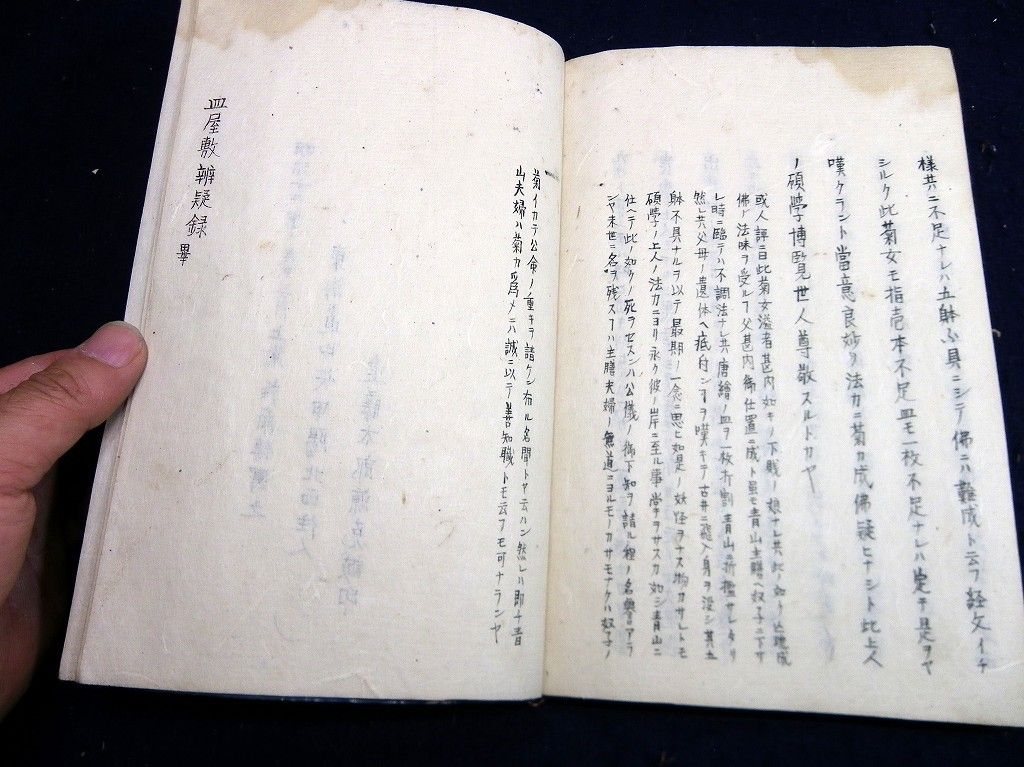 様共ニ不足ナレハ五躰不具ニシテ佛ニハ難成ト云フ経文イチ
シルク此菊女モ指壱本不足皿モ一枚不足ナレハ定テ是ヲヤ
嘆クラント當意良妙ノ法力ニ菊カ成佛疑ヒナシト此上人
ノ碩学博覧世人尊敬スルトカヤ
或人評ニ曰此菊女盗者甚内如キノ下賎ノ娘ナレ共此ノ如ク
佛ノ法味ヲ受ル父甚内御仕置ニ成ト雖モ青山主膳ヘ奴子ニ下サ
レ時ニ臨テハ不調法ナレ共唐繪ノ皿ヲ一枚打割青山ニ折檻サレタリ
然レ共父母ノ遺体ヘ疵付シヿヲ嘆キテ古井ニ飛入身ヲ没シ其上
躰不具ナルヲ以テ最期ノ一念ニ思ヒ如是ノ妖怪ヲナス物カサレトモ
碩学ノ上人ノ法力ニヨリ永ク彼ノ岸ニ至ル事尚チヲサスカ如シ青山ニ
仕ヘテ此ノ如クノ死ヲセスンハ公儀ノ御下知ヲ請ル程ノ名誉アラ
シヤ末世ニ名ヲ残スヿハ主膳夫婦ノ無道ニヨルモノカサモナクハ奴子ノ
菊イカテ公命ノ重キヲ請ケン有ル名聞トヤ云ハン然レハ即チ青
山夫婦ハ菊カ為メニハ誠ニ以テ善知職トモ云フモ可ナランヤ
皿屋敷辨疑録 畢